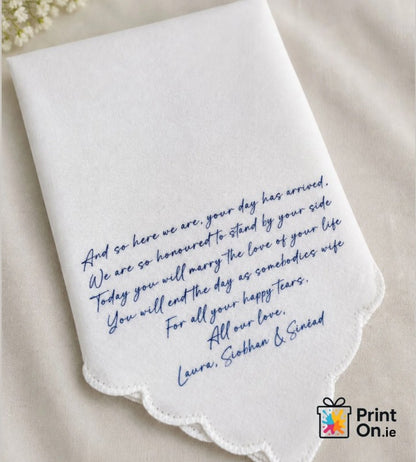 And so here we are, your day has arrived.
We are so honoured to stand by your side
Today you will marry the love of your life
You will end the day as somebodies wife
For all your happy tears.
All our love,
Laura, Siobhan & Sinéad
Print
On.ie